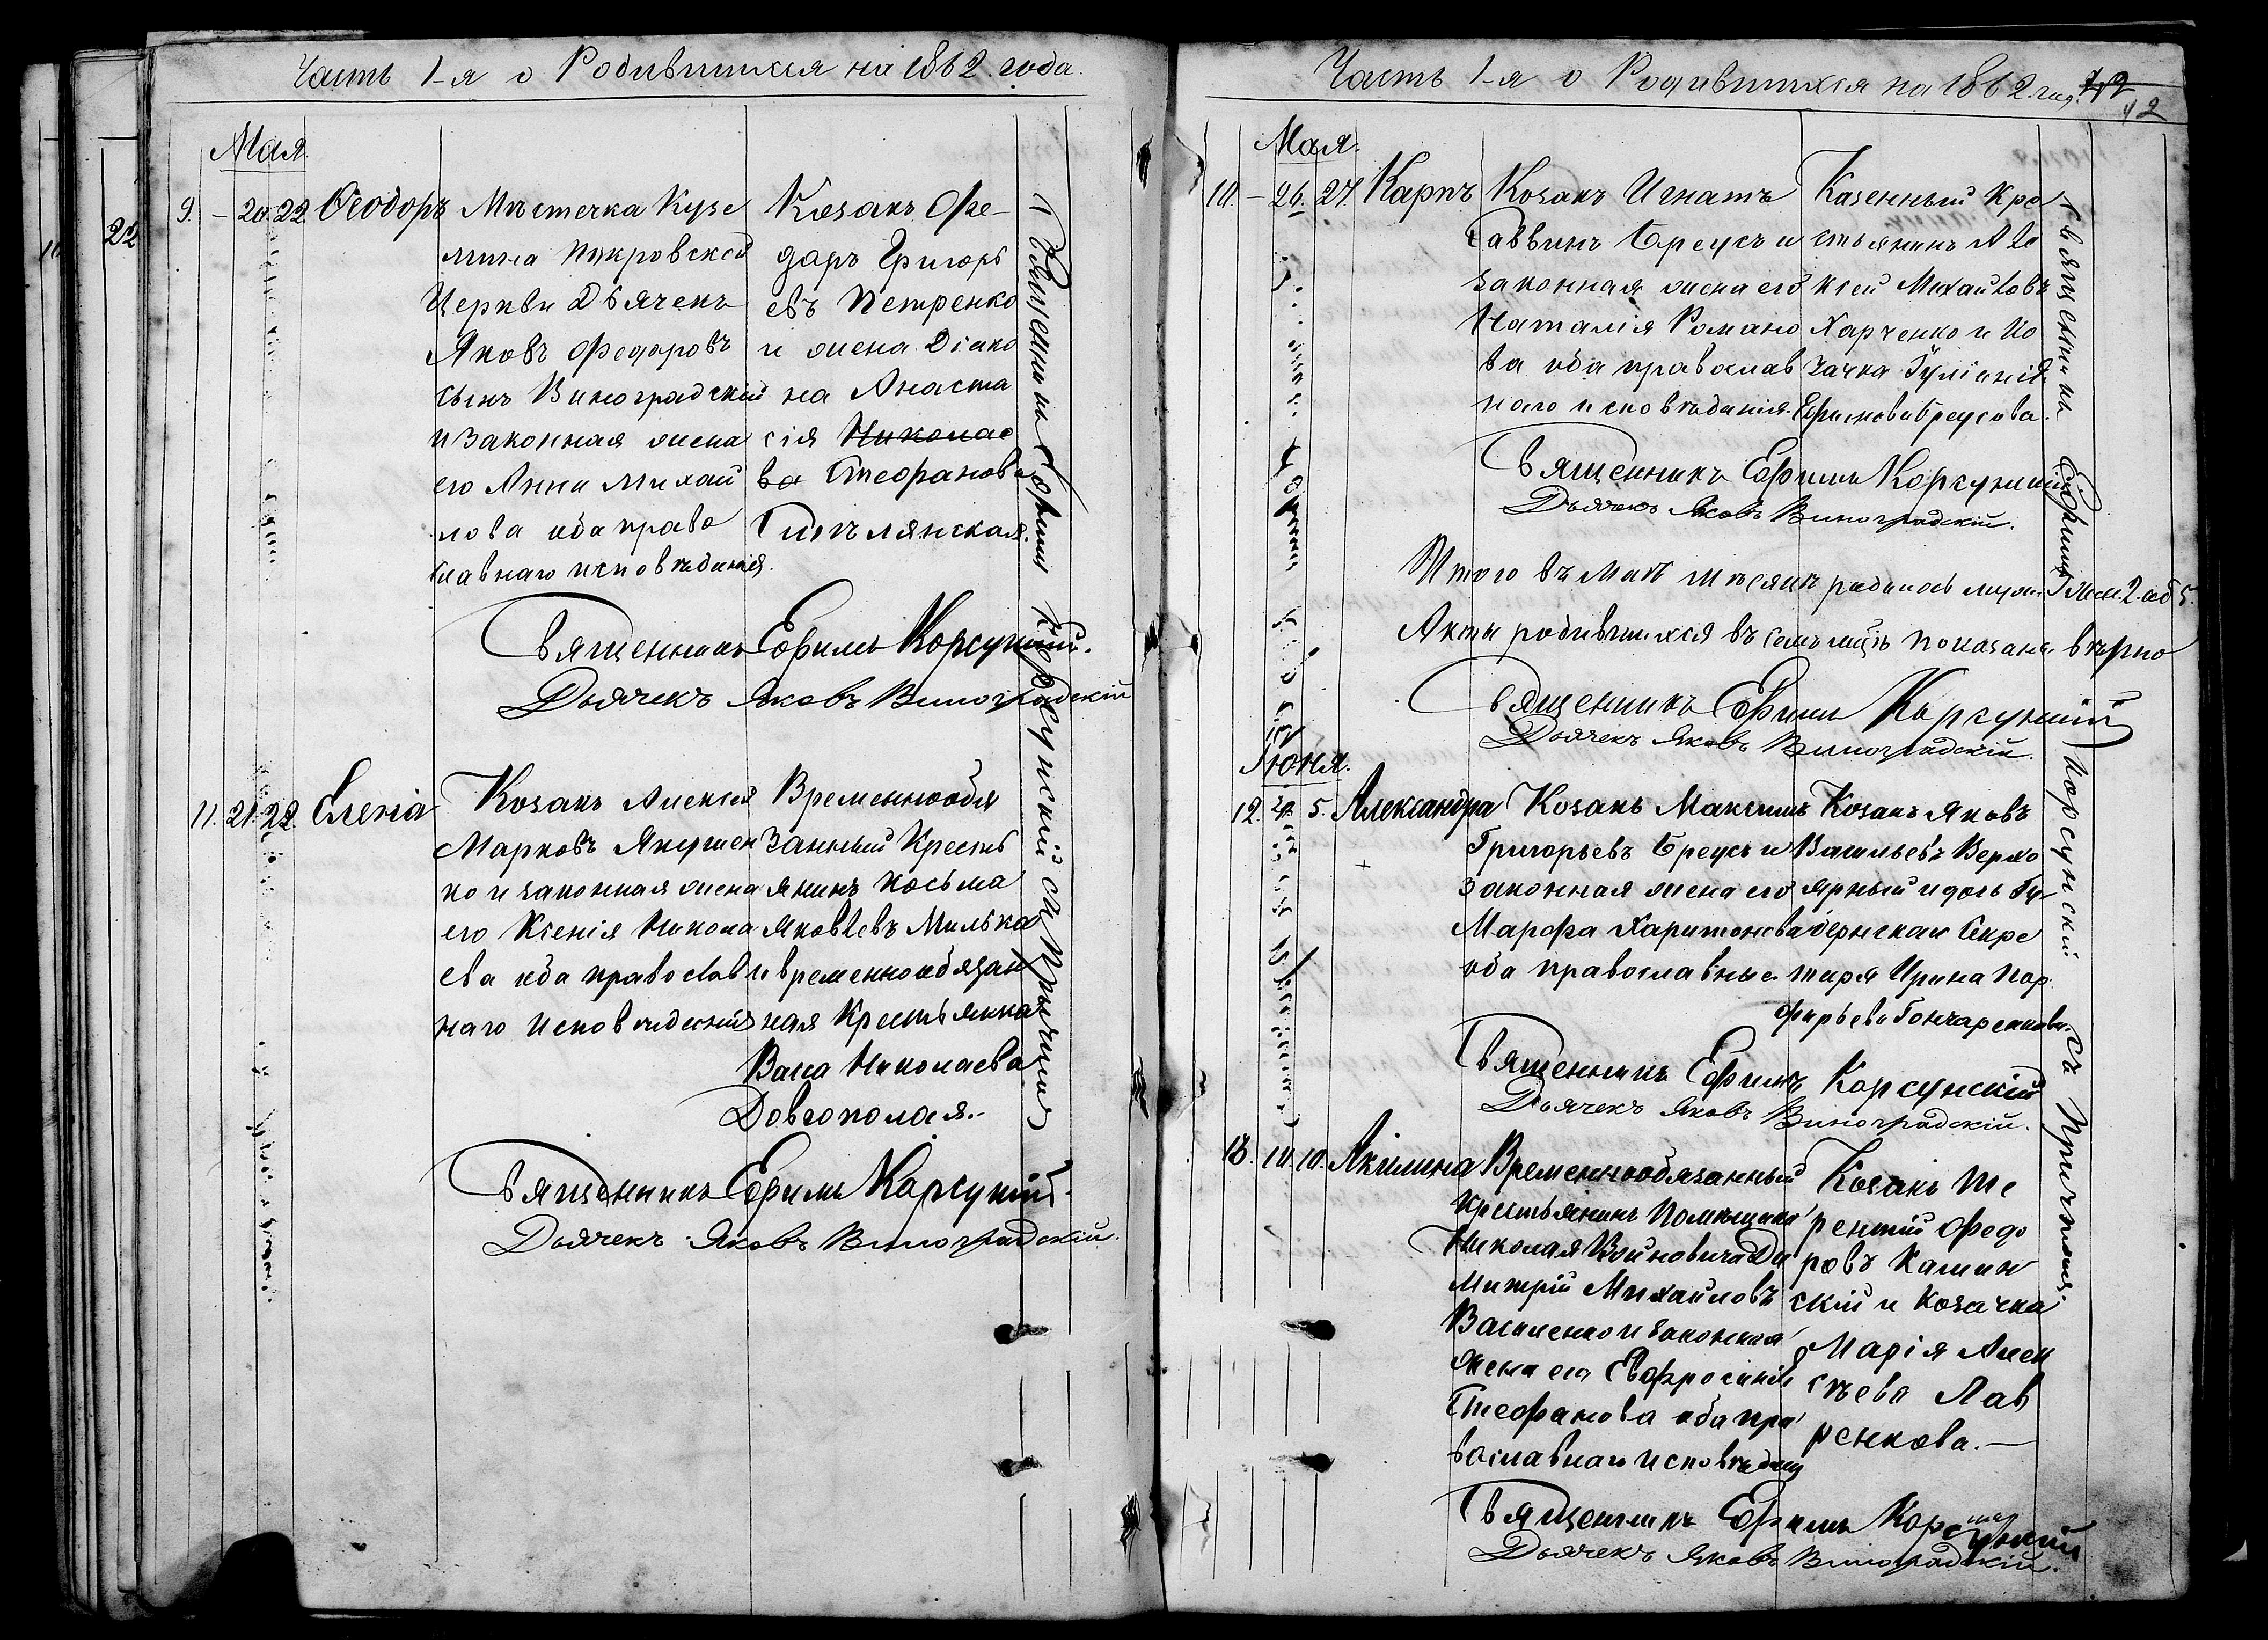 Часть 1-я о Родившихся на 1862. года.
Мая
9. – 20. 22. Ѳеодоръ
Мѣстечка Кузе
мина Покровской
Церкви Дьячекъ
Яковъ Федоровъ
сынъ Виноградскій
и законная жена
его Анна Михай
лова оба право
славнаго исповѣданія.
Козакъ Фе-
доръ Григорь
евъ Петренко
и жена Діако
на Анаста
сія Николае
ва Стефанова
Священникъ Ефимъ Корсунскій.
Дьячекъ Яковъ Виноградскій
11. 21. 22. Елена
Козакъ Алексей
Марковъ Якушен
ко и законная жена
его Ксенія Никола
ева оба православ
наго исповѣданія
Временнообя
занный Кресть
янинъ Косьма
Яковлевъ Милька
и временнообязан
ная Крестьянка
Васса Николаева
Довгополая.-
Священникъ Ефимъ Корсунскій.
Дьячекъ Яковъ Виноградскій.
Священникъ Ефимъ Корсунскій съ Причтомъ
22
Часть 1-я о Родившихся на 1862. год.
42
Мая.
10. – 26. 27. Карпъ
Козакъ Игнатъ
Саввинъ Бреусъ и
законная жена его
Наталія Романо
ва оба православ
наго исповѣданія.
Казенный Кре
стьянинъ Але
ксей Михайловъ
Харченко и Ко
зачка Іуліанія
Ефимова Бреусова.
Священникъ Ефимъ Корсунскій
Дьячекъ Яковъ Виноградскій.
Итого въ Маѣ мѣсяцѣ родилось муж. 3 жен. 2. об. 5.
Акты родившихся въ семъ мцѣ показаны вѣрно
Священникъ Ефимъ Корсунскій
Дьячекъ Яковъ Виноградскій.
Іюня.
12. 5. Александра
Козакъ Максимъ
Григорьевъ Бреусъ и
законная жена его
Марфа Харитонова
оба православные.
Козакъ Яковъ
Васильевъ Верхо
ярный и дочь Гу-
бернскаго Секре
таря Ирина Пор
фирьева Гончаренкова.
Священникъ Ефимъ Корсунскій
Дьячекъ Яковъ Виноградскій.
13. 10. 10. Акилина
Временнообязанный
Крестьянинъ Помѣщика
Николая Войновича Ди
митрій Михайловъ
Василенко и законная
жена его Евфросинія
Стефанова оба пра
вославнаго исповѣдан
Козакъ Те
рентій Федо
ровъ Камин
скій и Козачка
Марія Алек
сѣева Лав
ренкова.—
Священникъ Ефимъ Корсунскій
Дьячекъ Яковъ Виноградскій.
Священникъ Ефимъ Корсунскій съ Причтомъ.